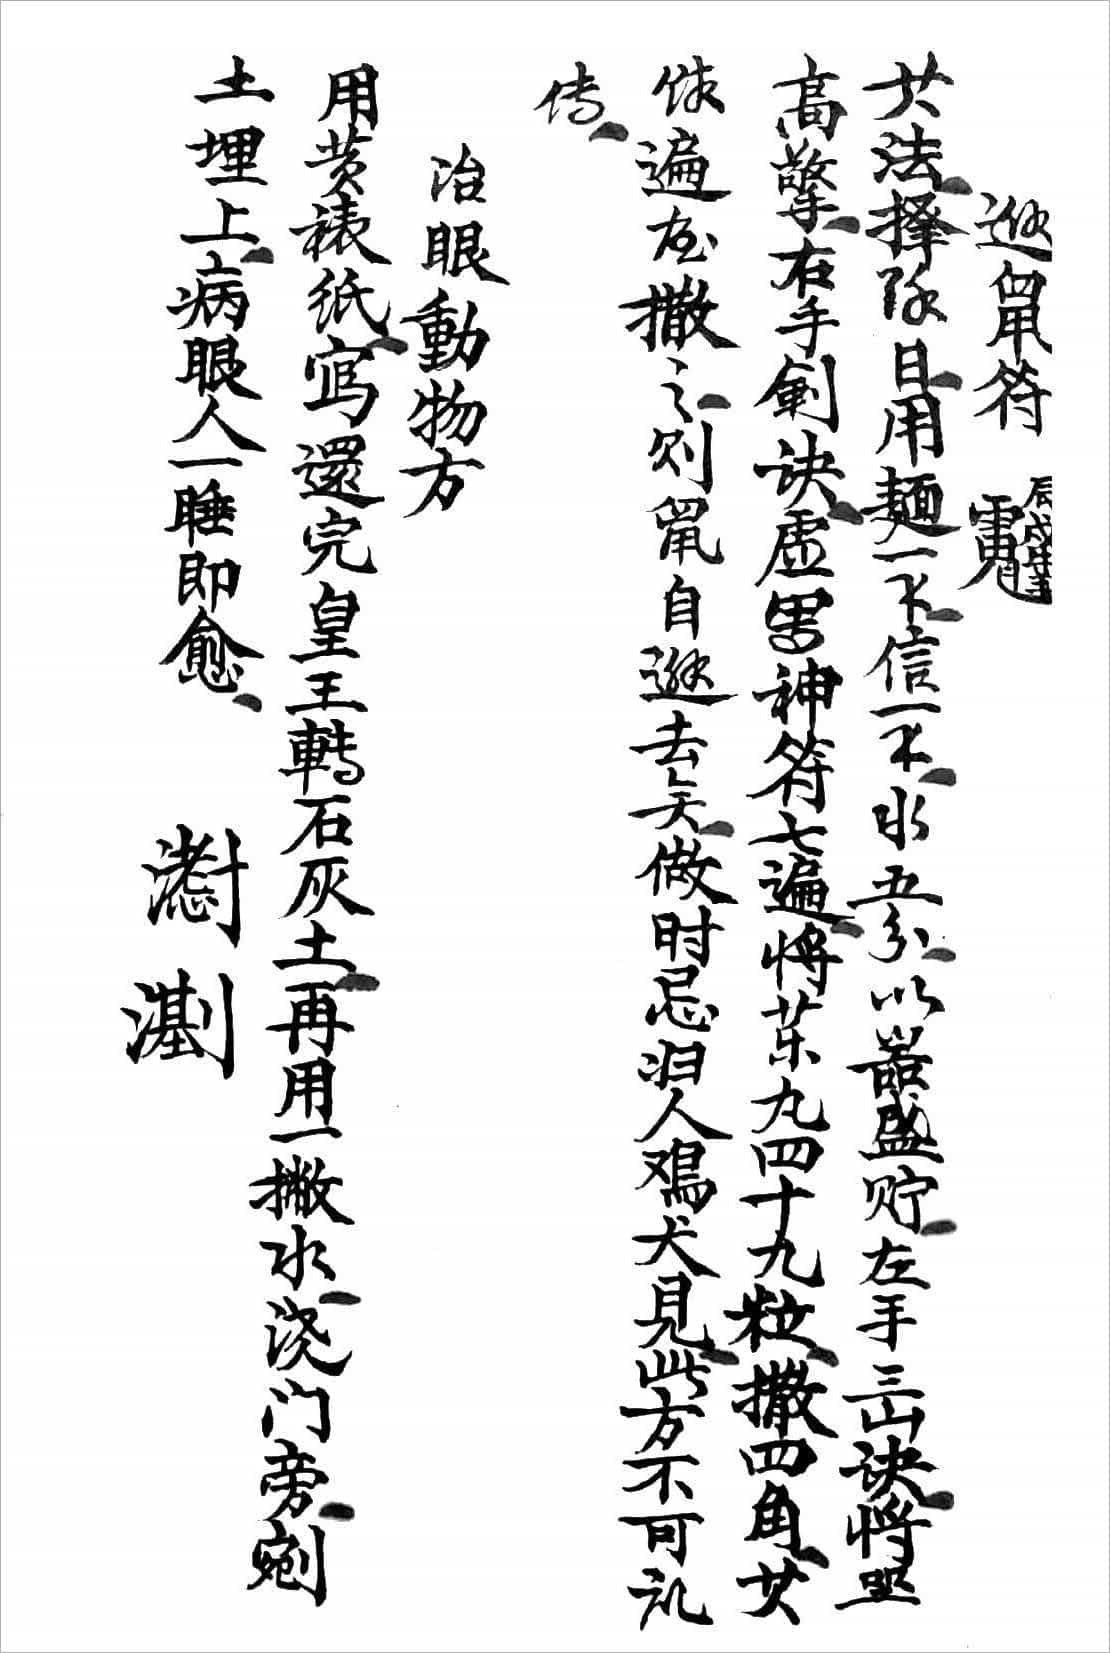 逊鼠符
其法择除日用麺一不信一不水五分以器盛贮左手三山诀将
高擎右手剣诀虚罗神符七遍将药丸四十九粒撒四角其
馀遍处撒之则鼠自逊去矣做时忌妇人鸡犬見此方不可乱
传
治眼動物方
用黄裱纸寫還完皇王轉石灰土再用一撇水浇门旁剜
土埋上病眼人一睡即愈